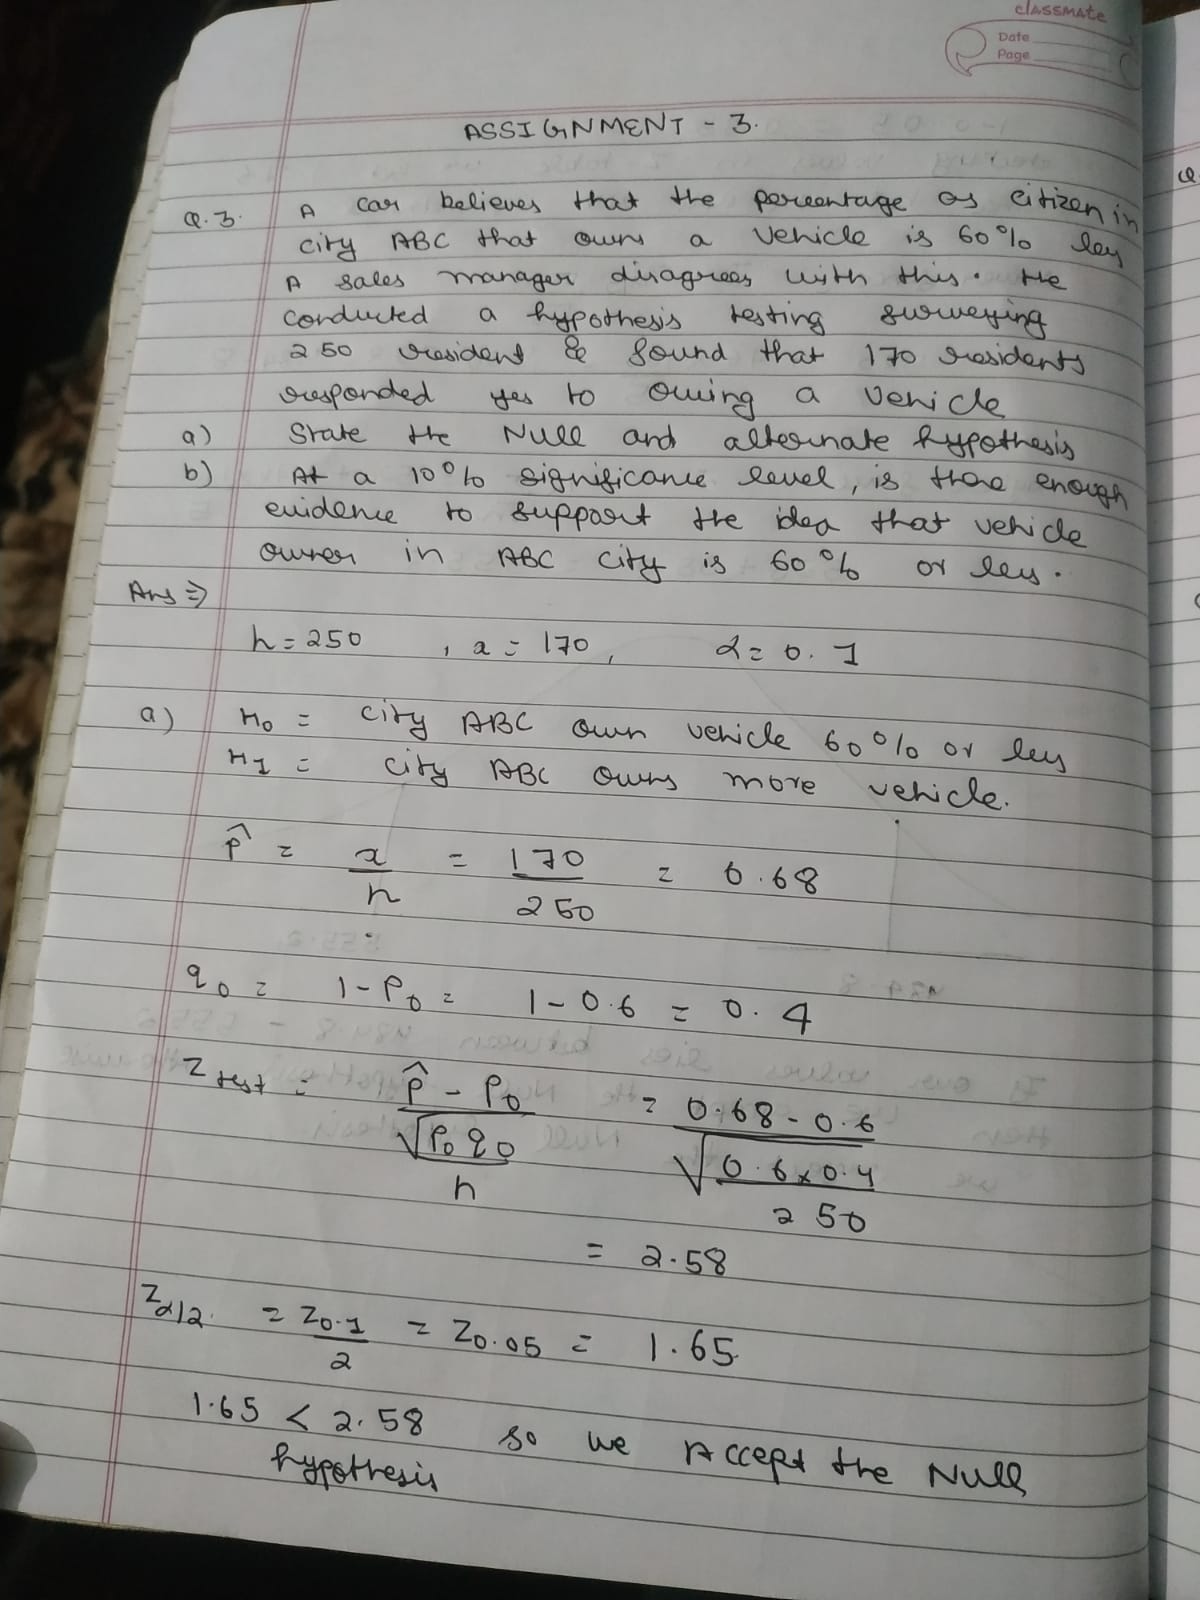 classmate
Date
Page
ASSIGNMENT - 3.
Q.3. A car believes that the percentage os citizen in
city ABC that owns a vehicle is 60% less
A sales manager disagrees with this. He
conducted a hypothesis testing surveying
250 resident & found that 170 residents
responded yes to owing a vehicle
a) State the Null and alternate hypothesis
b) At a 10% significance level, is there enough
evidence to support the idea that vehicle
owner in ABC city is 60% or less.
Ans ⇒
n = 250 , x = 170, α = 0.1
a) H₀ = city ABC own vehicle 60% or less
H₁ = city ABC owns more vehicle.
p̂ = x/n = 170/250 = 0.68
q₀ = 1-P₀ = 1-0.6 = 0.4
Z test = (p̂ - P₀)/√(P₀q₀/n) = (0.68-0.6)/√(0.6×0.4/250)
= 2.58
Zα/2. = Z0.1/2 = Z0.05 = 1.65
1.65 < 2.58 so we Accept the Null
hypothesis